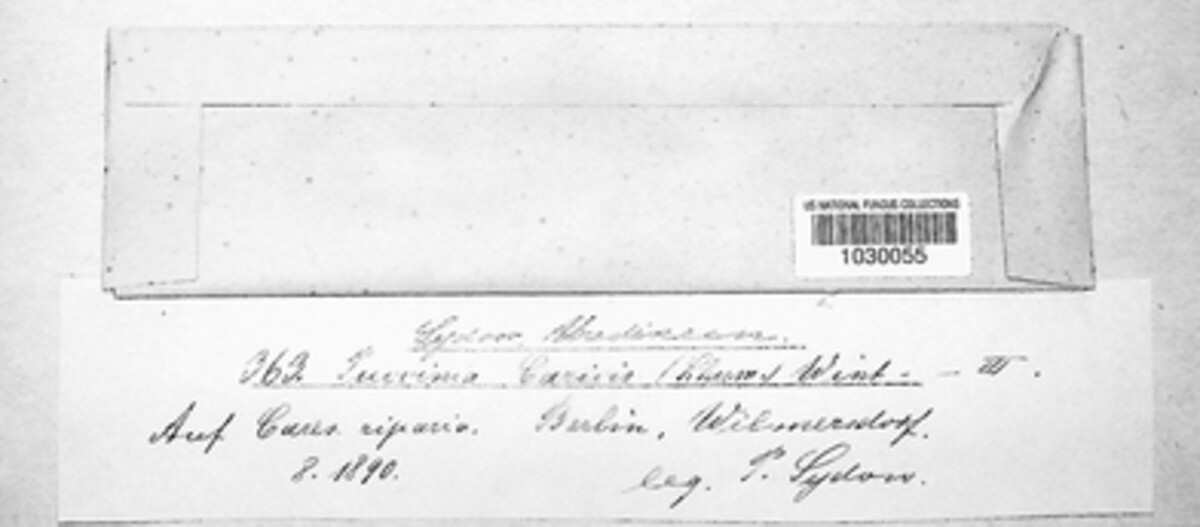 US NATIONAL FUNGUS COLLECTIONS
1030055
Sydow, Uredineen.
363. Puccinia Caricis (Schum) Wint. - III.
Auf Carex riparia. Berlin, Wilmersdorf.
8. 1890.
leg. P. Sydow.